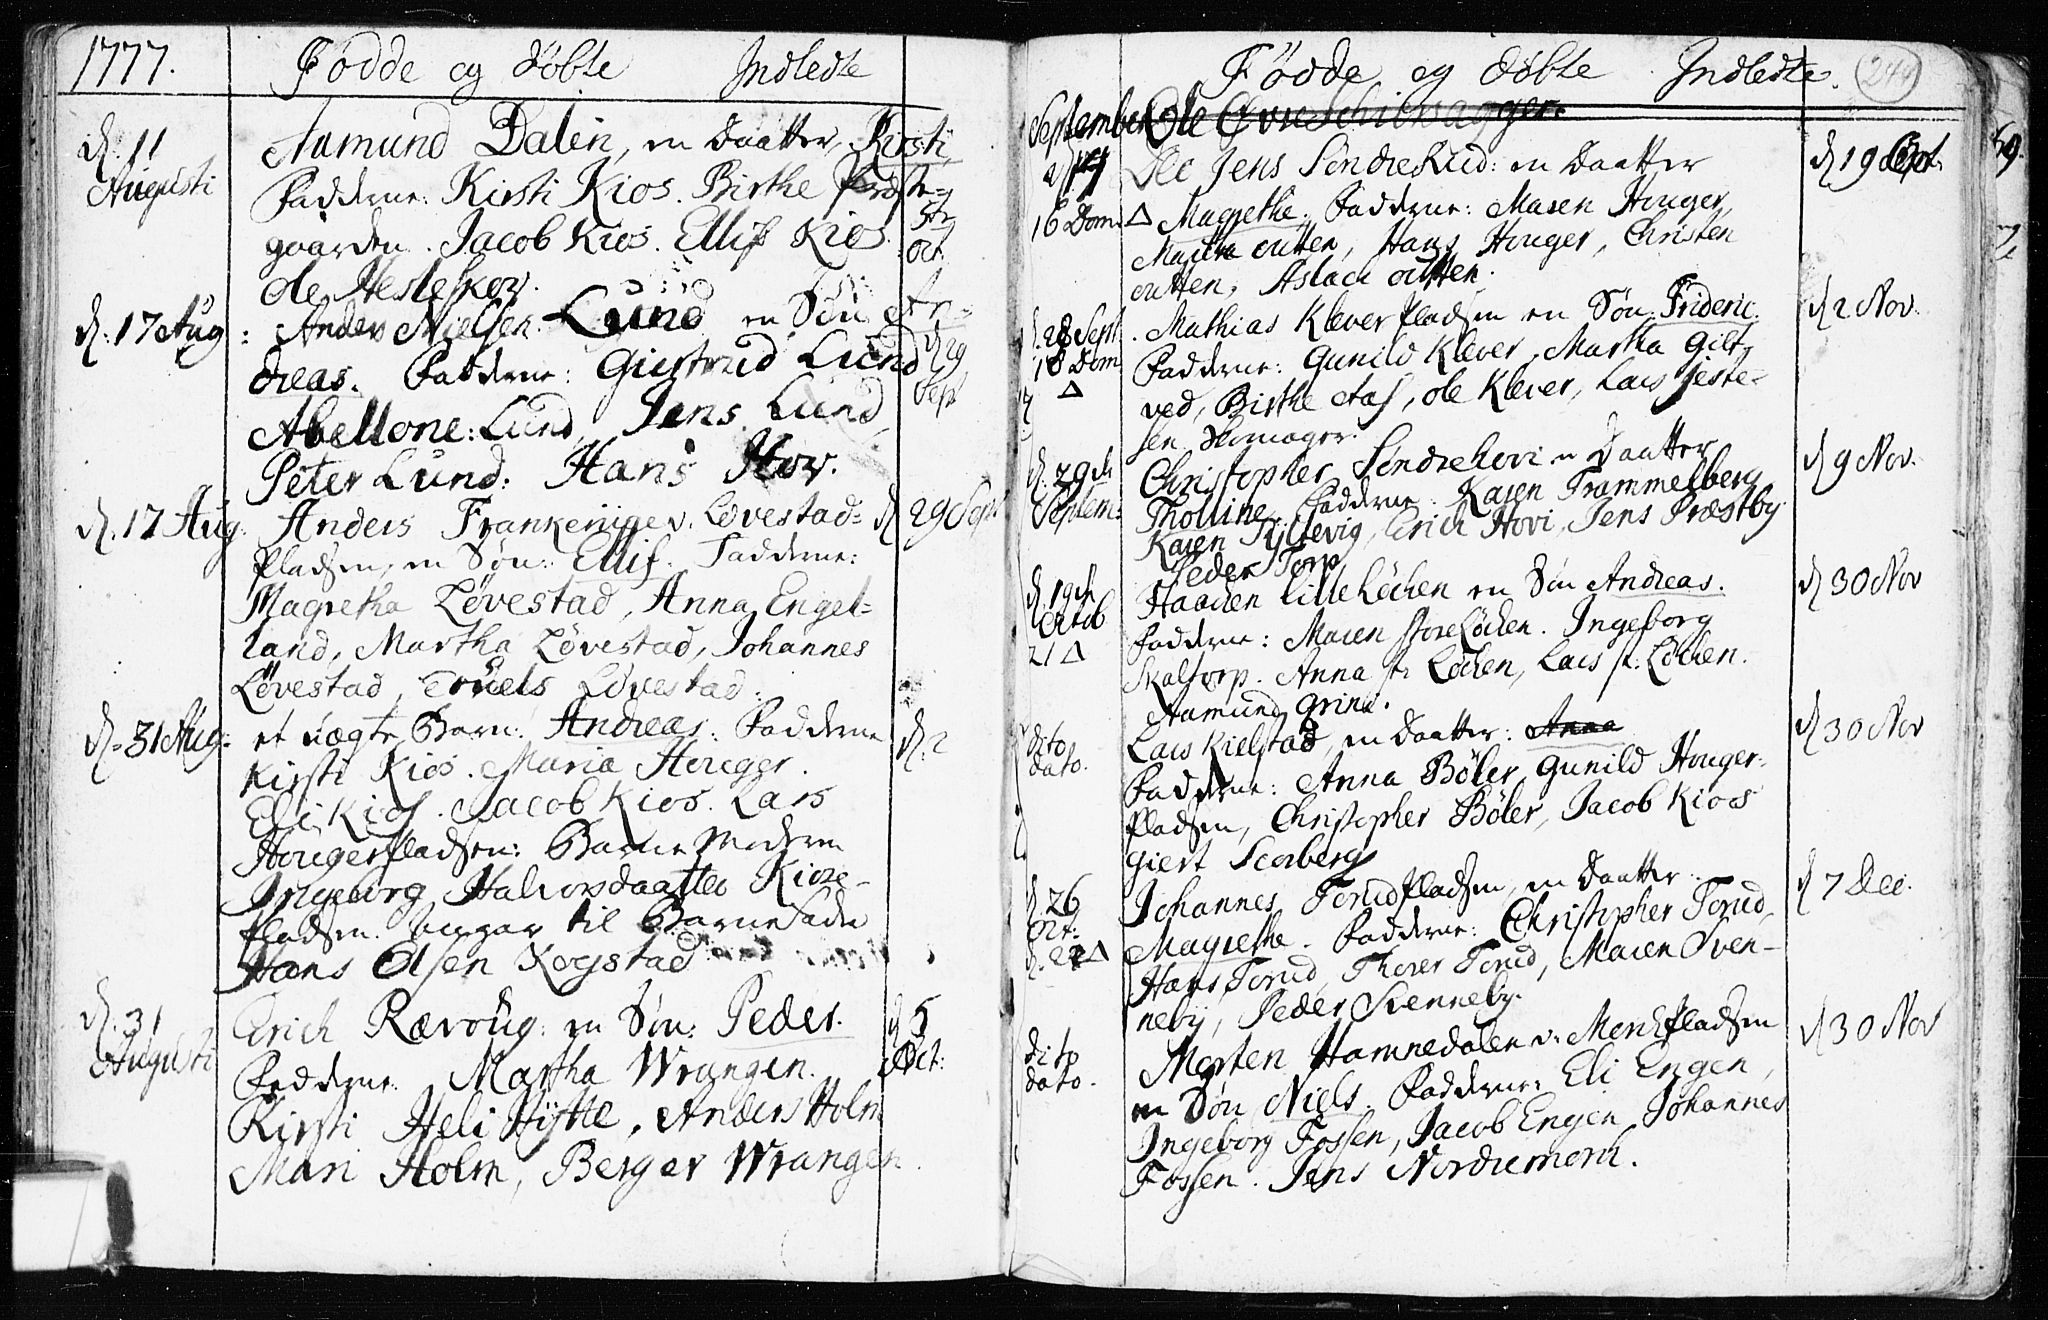 1777.
Fødde og døbte Indledte
d. 11 Augusti
Aamund Dalen, en Daatter, Kirsti
Fadderne: Kirsti Kios. Birthe Præste-
gaarden. Jacob Kios. Ellif Kios.
5te Oct.
Ole Hesleskov.
d. 17 Aug: Anders Nielsen Lund en Søn An-
dreas. Fadderne: Giertrud Lund
d 29 Sept
Abellone: Lund, Jens Lund
Peter Lund: Hans Hov.
d. 17 Aug: Anders Frankerige v. Løvestad- d 29 Sept
Pladsen, en Søn: Ellif. Fadderne:
Magretha Løvestad, Anna Engel-
land, Martha Løvestad, Johannes
Løvestad, Truels Løvestad.
d. 31 Aug: et uægte Barn: Andreas. Fadderne d. 2
Kirsti Kios. Maria Houger.
Eli Kios. Jacob Kios. Lars
Hougerpladsen: Barne Moderen
Ingeborg Halvorsdaatter Kiose-
pladsen. angav til Barnefader
Hans Olsen Kogstad
d. 31 Augusti
Erich Rævoug: en Søn: Peder. d 5 Oct:
Fadderne. Martha Wrangen.
Kirsti Heli Hytte, Anders Holm
Mari Holm, Berger Wrangen.
Fødde og døbte Indledte. 244
September Ole Øvre
Jens Søndre Lud: en Daatter d 19 Oct.
16 Dom. Δ Magrethe. Fadderne: Maren Houger,
Hans Houger, Christen
d. 28 Sept. Mathias Kleverpladsen en Søn Frideric. d 2 Nov.
18 Dom Δ Fadderne: Gunild Klever, Martha Gilt-
ved, Birthe Aas, Ole Klever, Lars Jeste-
sen Skomager.
d. 29de Septem: Christopher Søndre Hovi en Daatter d 9 Nov.
Tholline. Fadderne: Karen Trammelberg
Karen Tyltevig, Erich Hovi, Jens Præstby
Peder Torp
d. 19de Octob 21 Δ Haaken Lille Løchen en Søn Andreas. d 30 Nov
Fadderne: Maren Store Løchen. Ingeborg
Skaltorp. Anna st. Løchen, Lars st. Løchen.
Aamund Grini.
dito dato. Lars Kielstad, en Daatter: Anna d 30 Nov
Fadderne: Anna Bøler, Gunild Houger-
pladsen, Christopher Bøler, Jacob Kioos
Giert Scorberg
d. 26 Oct: Johannes Torudpladsen, en Daatter d 7 Dec.
22 Δ Magrethe. Fadderne: Christopher Torud,
Hans Torud, Thorer Torud, Maren Sven-
neby, Peder Svenneby.
dito dato. Morten Hamnedalen v. Merchpladsen d 30 Nov
en Søn Niels. Fadderne: Eli Engen,
Ingeborg Fossen, Jacob Engen, Johannes
Fossen. Jens Nordremork.